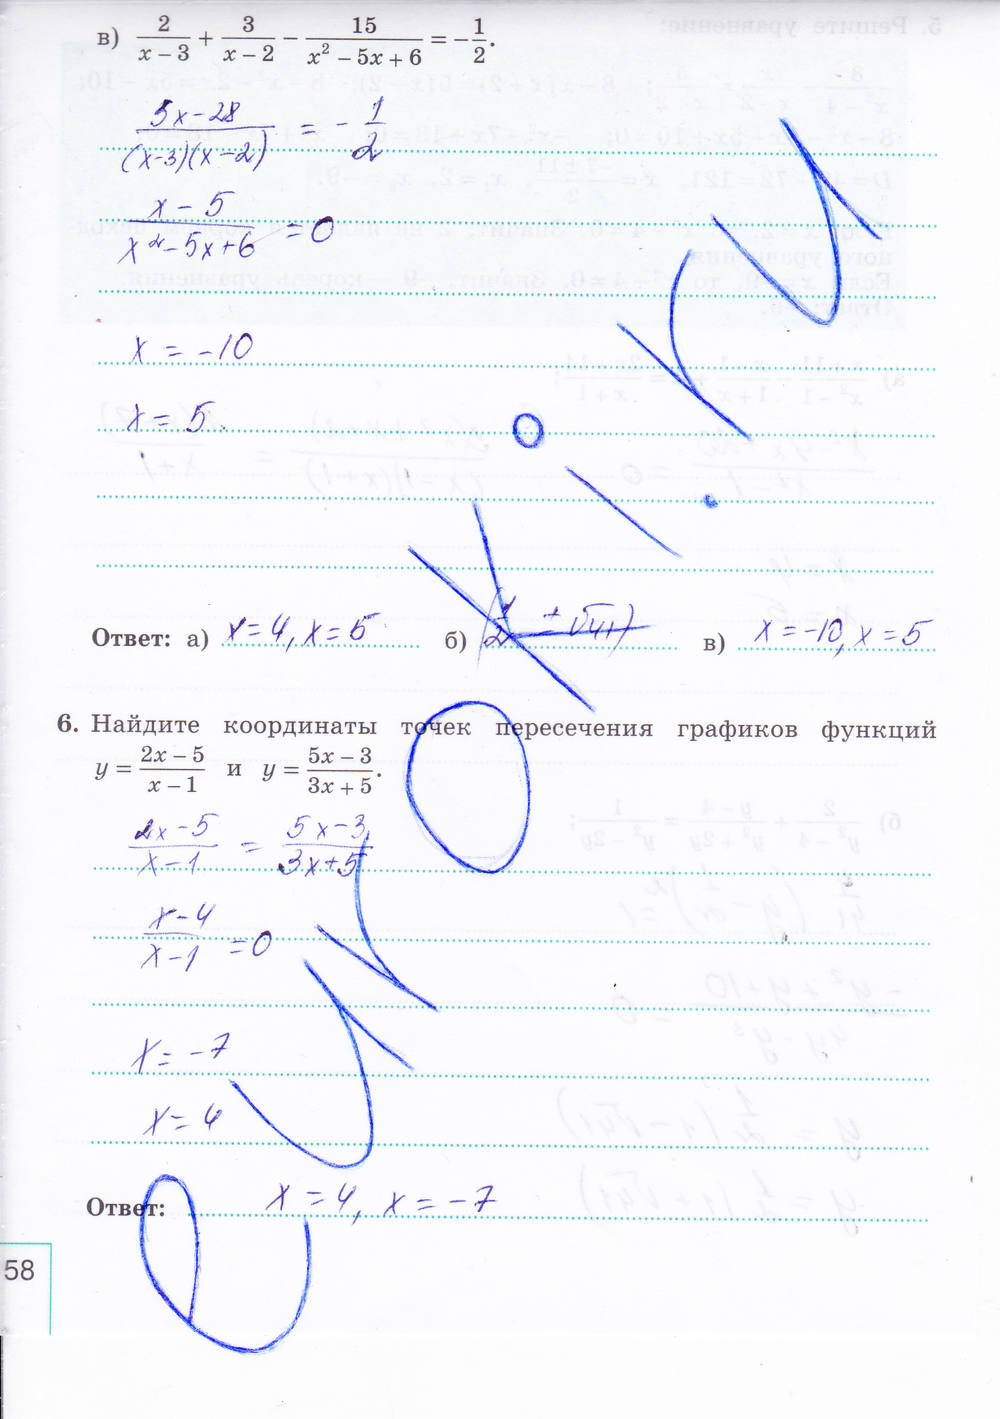 в) 2/(x − 3) + 3/(x − 2) − 15/(x² − 5x + 6) = −1/2.
5x−28/(x−3)(x−2) = −1/2
x−5/x²−5x+6 = 0
x = −10
x = 5
Ответ: а) x=4, x=5 б) (1/2 ± √41) в) x=−10, x=5
6. Найдите координаты точек пересечения графиков функций
y = (2x − 5)/(x − 1) и y = (5x − 3)/(3x + 5).
2x−5/x−1 = 5x−3/3x+5
x−4/x−1 = 0
x = −7
x = 4
Ответ: x = 4, x = −7
58
eurokI.ru